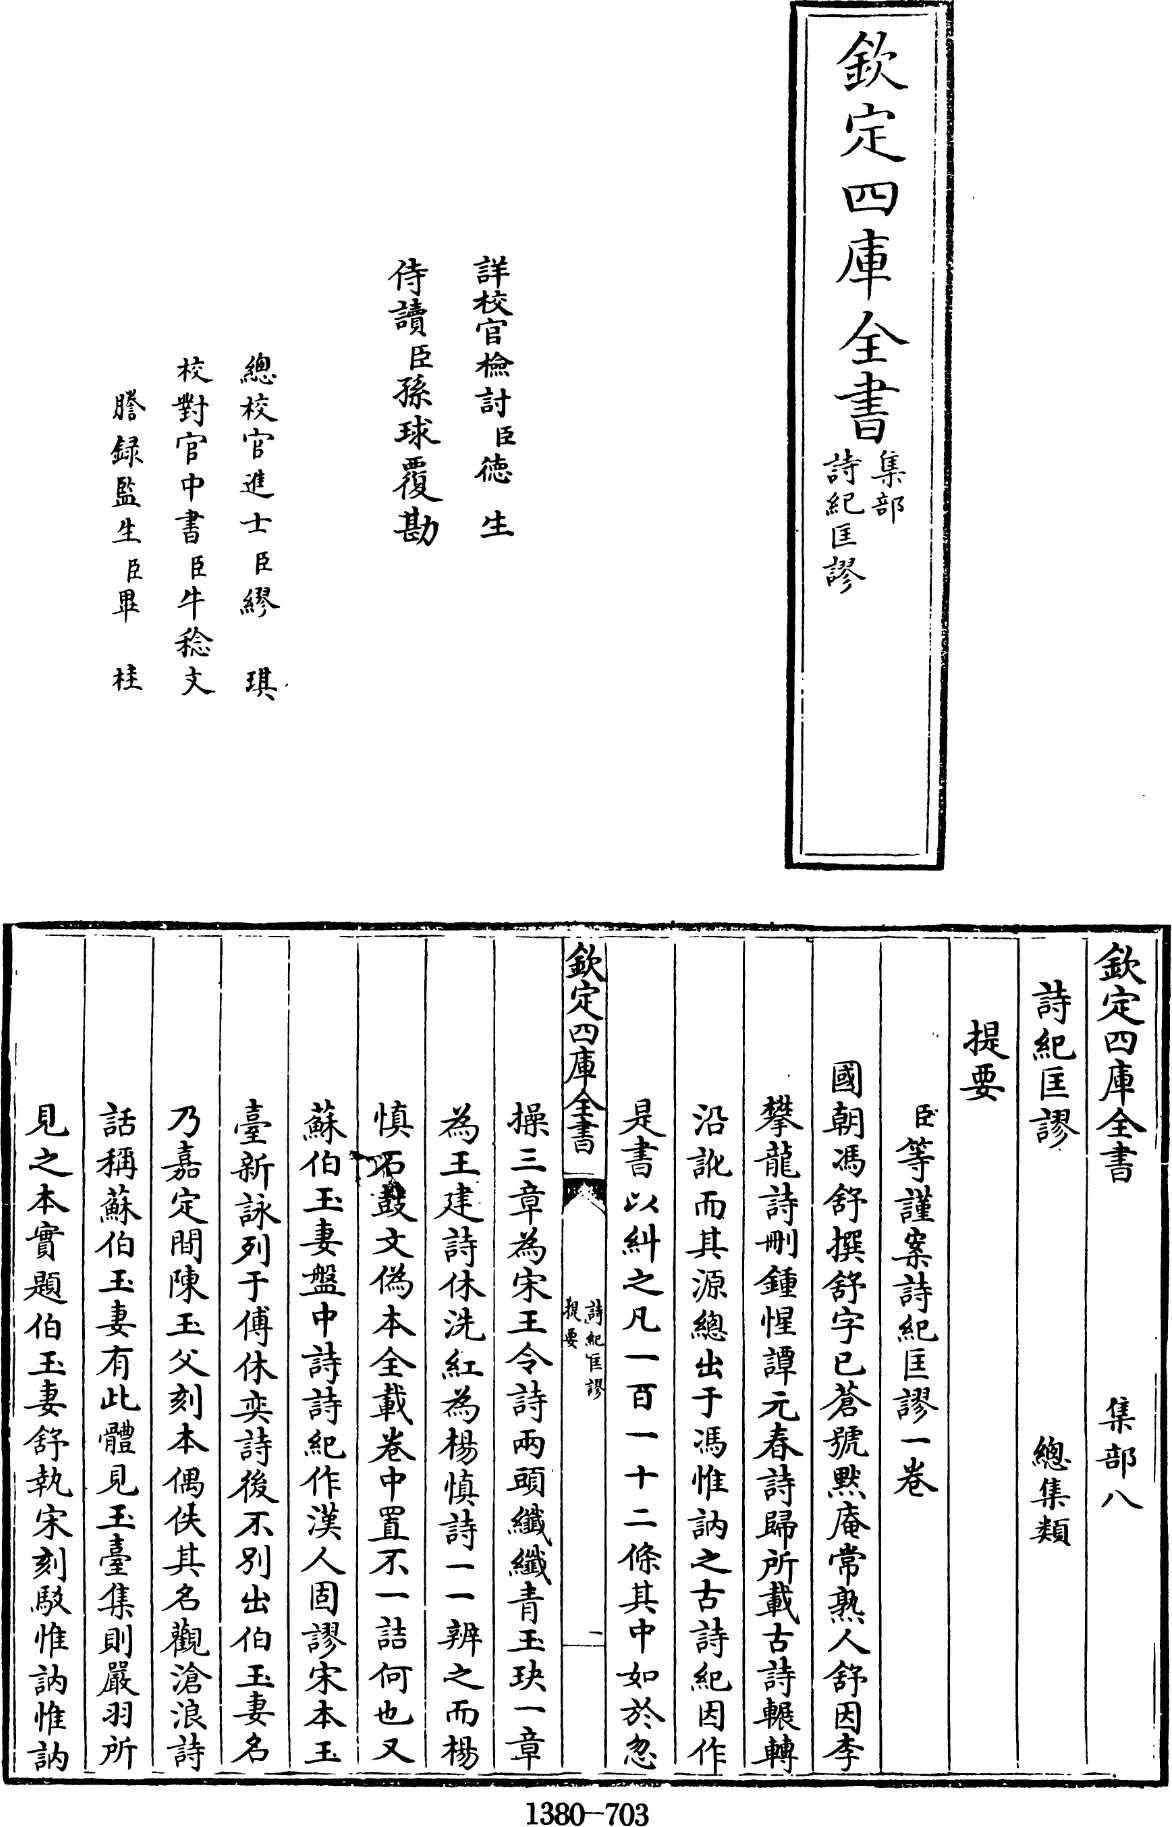 欽定四庫全書
集部
詩紀匡謬
詳校官檢討臣德生
侍讀臣孫球覆勘
總校官進士臣繆琪
校對官中書臣牛稔文
謄録監生臣畢桂
欽定四庫全書 集部八
詩紀匡謬 總集類
提要
臣等謹案詩紀匡謬一卷
國朝馮舒撰舒字已蒼號默庵常熟人舒因李
攀龍詩刪鍾惺譚元春詩歸所載古詩輾轉
沿訛而其源總出于馮惟訥之古詩紀因作
是書以糾之凡一百一十二條其中如於忽
欽定四庫全書
詩紀匡謬
提要
一
操三章為宋王令詩兩頭纖纖青玉玦一章
為王建詩休洗紅為楊慎詩一一辨之而楊
慎石鼓文偽本全載卷中置不一詰何也又
蘇伯玉妻盤中詩詩紀作漢人固謬宋本玉
臺新詠列于傅休奕詩後不別出伯玉妻名
乃嘉定間陳玉父刻本偶佚其名觀滄浪詩
話稱蘇伯玉妻有此體見玉臺集則嚴羽所
見之本實題伯玉妻舒執宋刻駁惟訥惟訥
1380-703